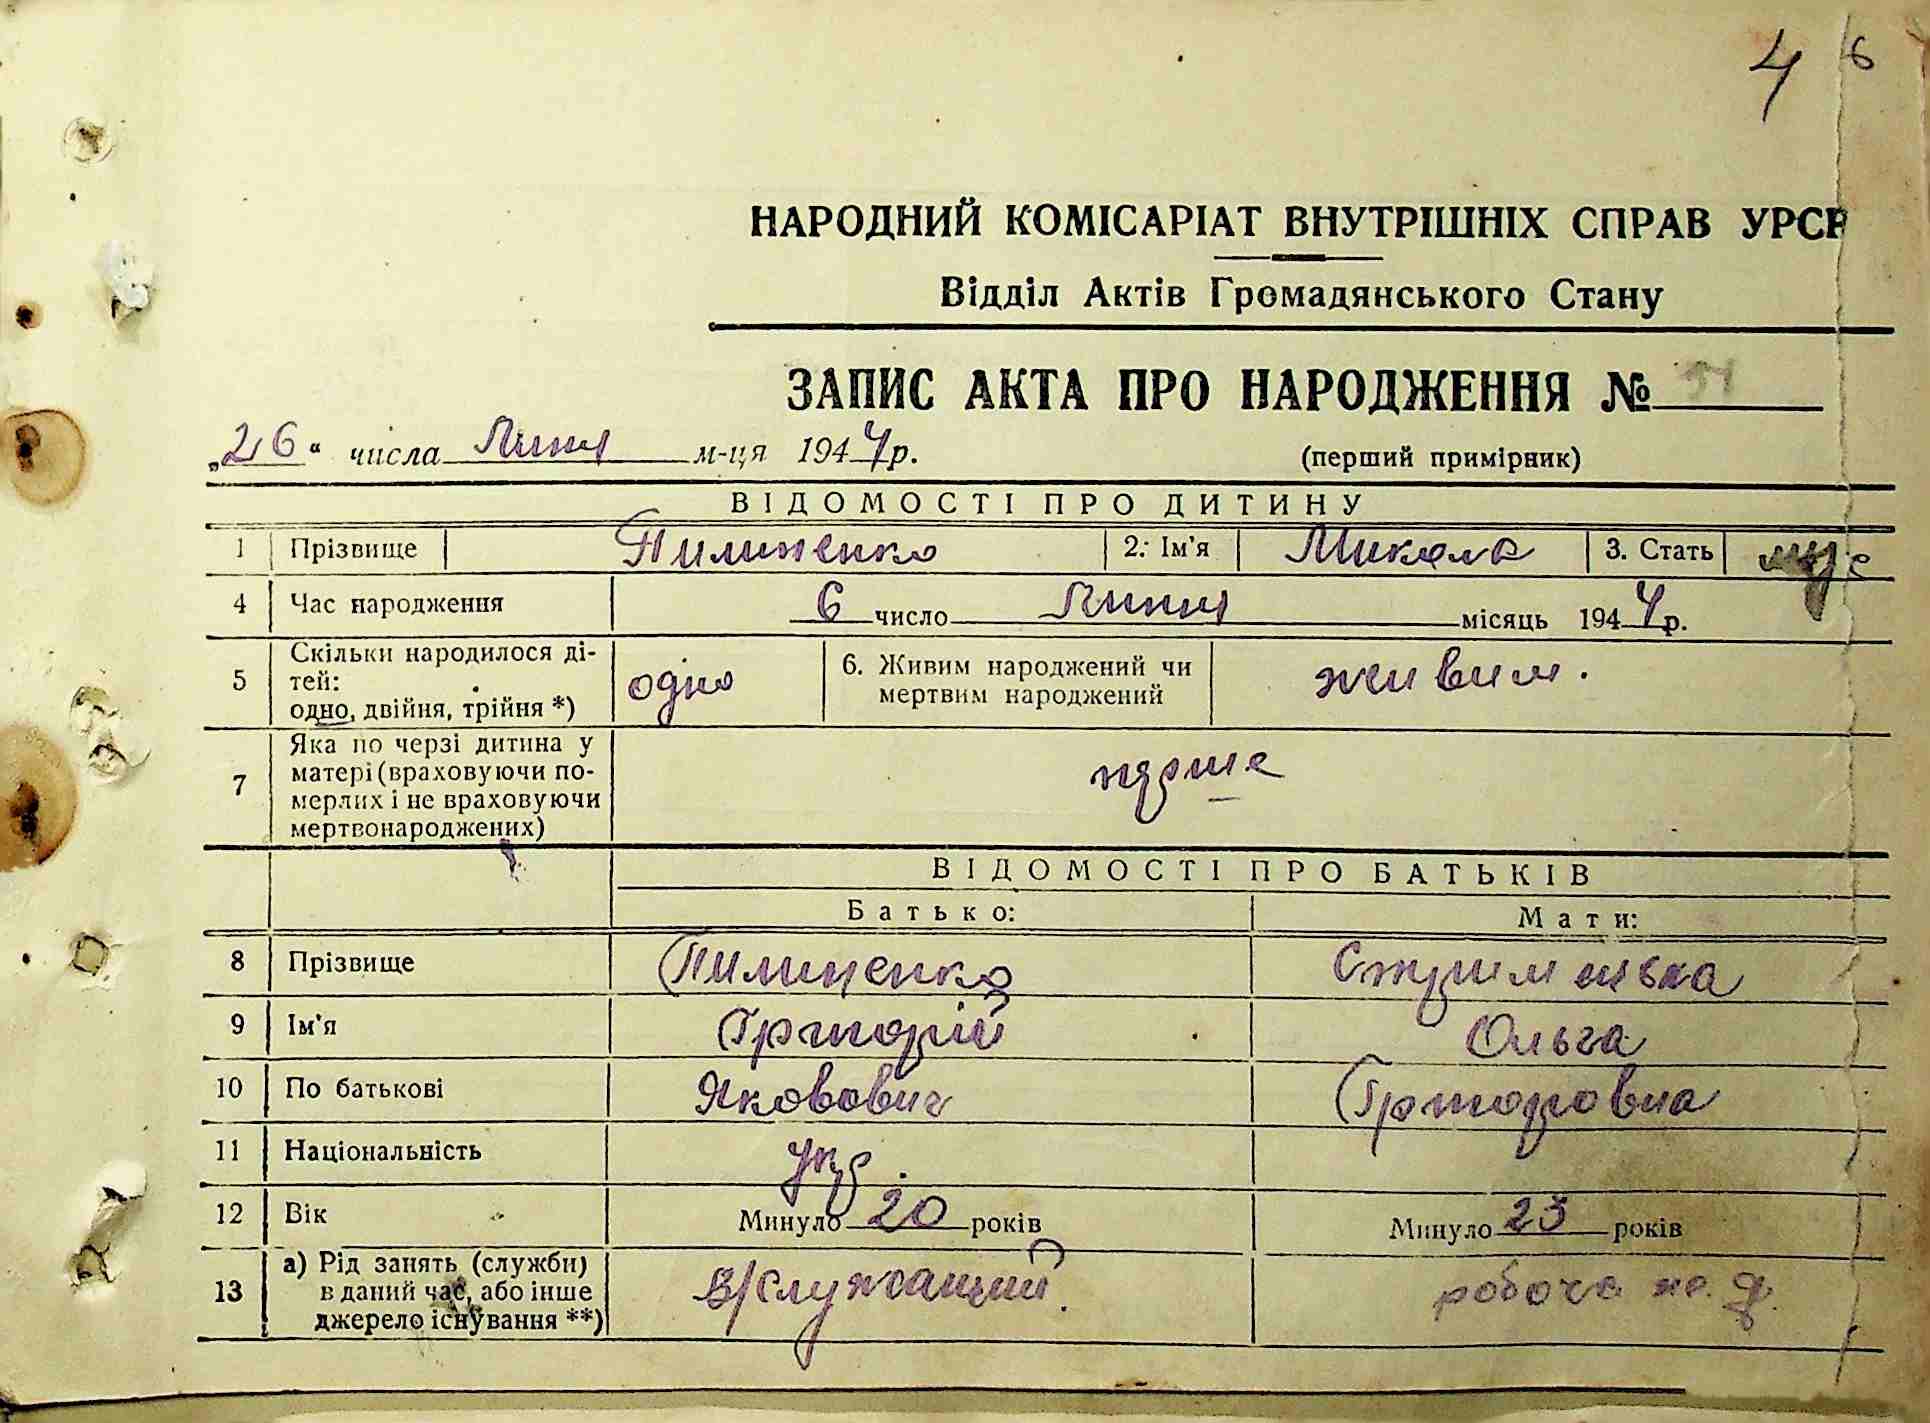 4 6
НАРОДНИЙ КОМІСАРІАТ ВНУТРІШНІХ СПРАВ УРСР
Відділ Актів Громадянського Стану
ЗАПИС АКТА ПРО НАРОДЖЕННЯ №
„26“ числа Липня м-ця 1944р.
(перший примірник)
ВІДОМОСТІ ПРО ДИТИНУ
1 Прізвище Пилипенко 2. Ім'я Микола 3. Стать муж
4 Час народження 6 число Липня місяць 1944р.
5 Скільки народилося ді-
тей:
одно, двійня, трійня *) одно
6. Живим народжений чи
мертвим народжений живим.
7 Яка по черзі дитина у
матері (враховуючи по-
мерлих і не враховуючи
мертвонароджених) перше
ВІДОМОСТІ ПРО БАТЬКІВ
Батько: Мати:
8 Прізвище Пилипенко
9 Ім'я Григорій Ольга
10 По батькові Якович Григоровна
11 Національність укр.
12 Вік Минуло 20 років Минуло 23 років
13 а) Рід занять (служби)
в даний час, або інше
джерело існування **) в/служащий робоча